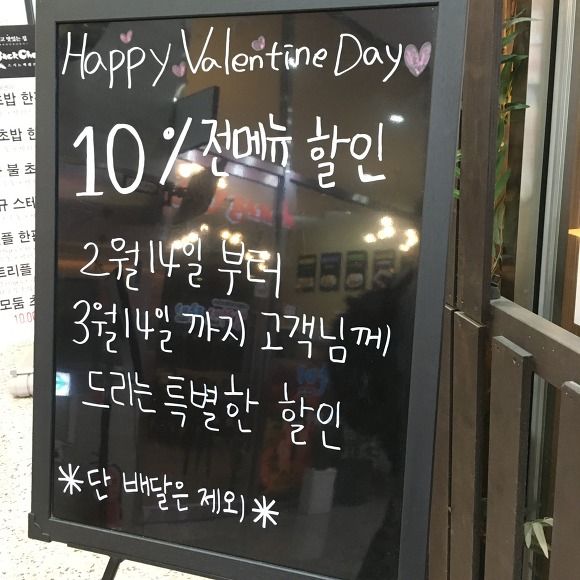 Happy Valentine Day
10% 전메뉴 할인
2월 14일 부터
3월 14일 까지 고객님께
드리는 특별한 할인
*단 배달은 제외*
초밥 한
불 초
규 스테
플 한판
트리플
모둠 초